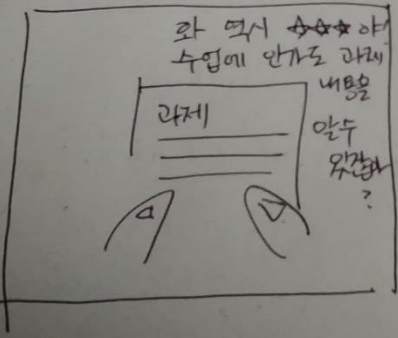 와 역시 ☆☆☆ 야
수업에 안가도 과제
내용을
알수
있잖아
?
과제